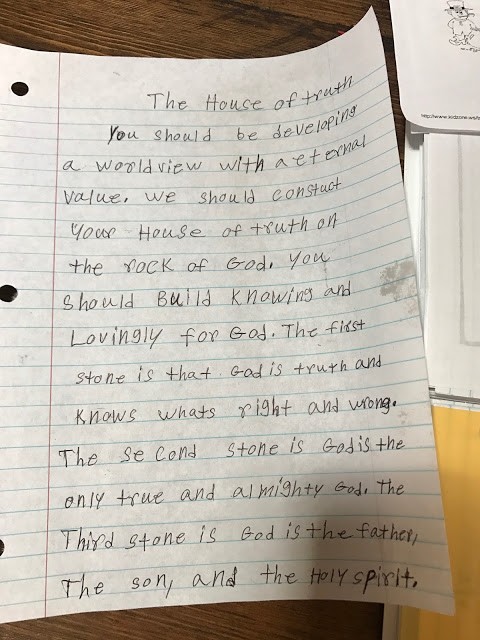 The House of truth
You should be developing
a worldview with a eternal
value. We should constuct
your House of truth on
the rock of God. You
should Build Knowing and
Lovingly for God. The first
stone is that God is truth and
Knows whats right and wrong.
The Second stone is God is the
only true and almighty God. The
Third stone is God is the father,
The son, and the Holy spirit.